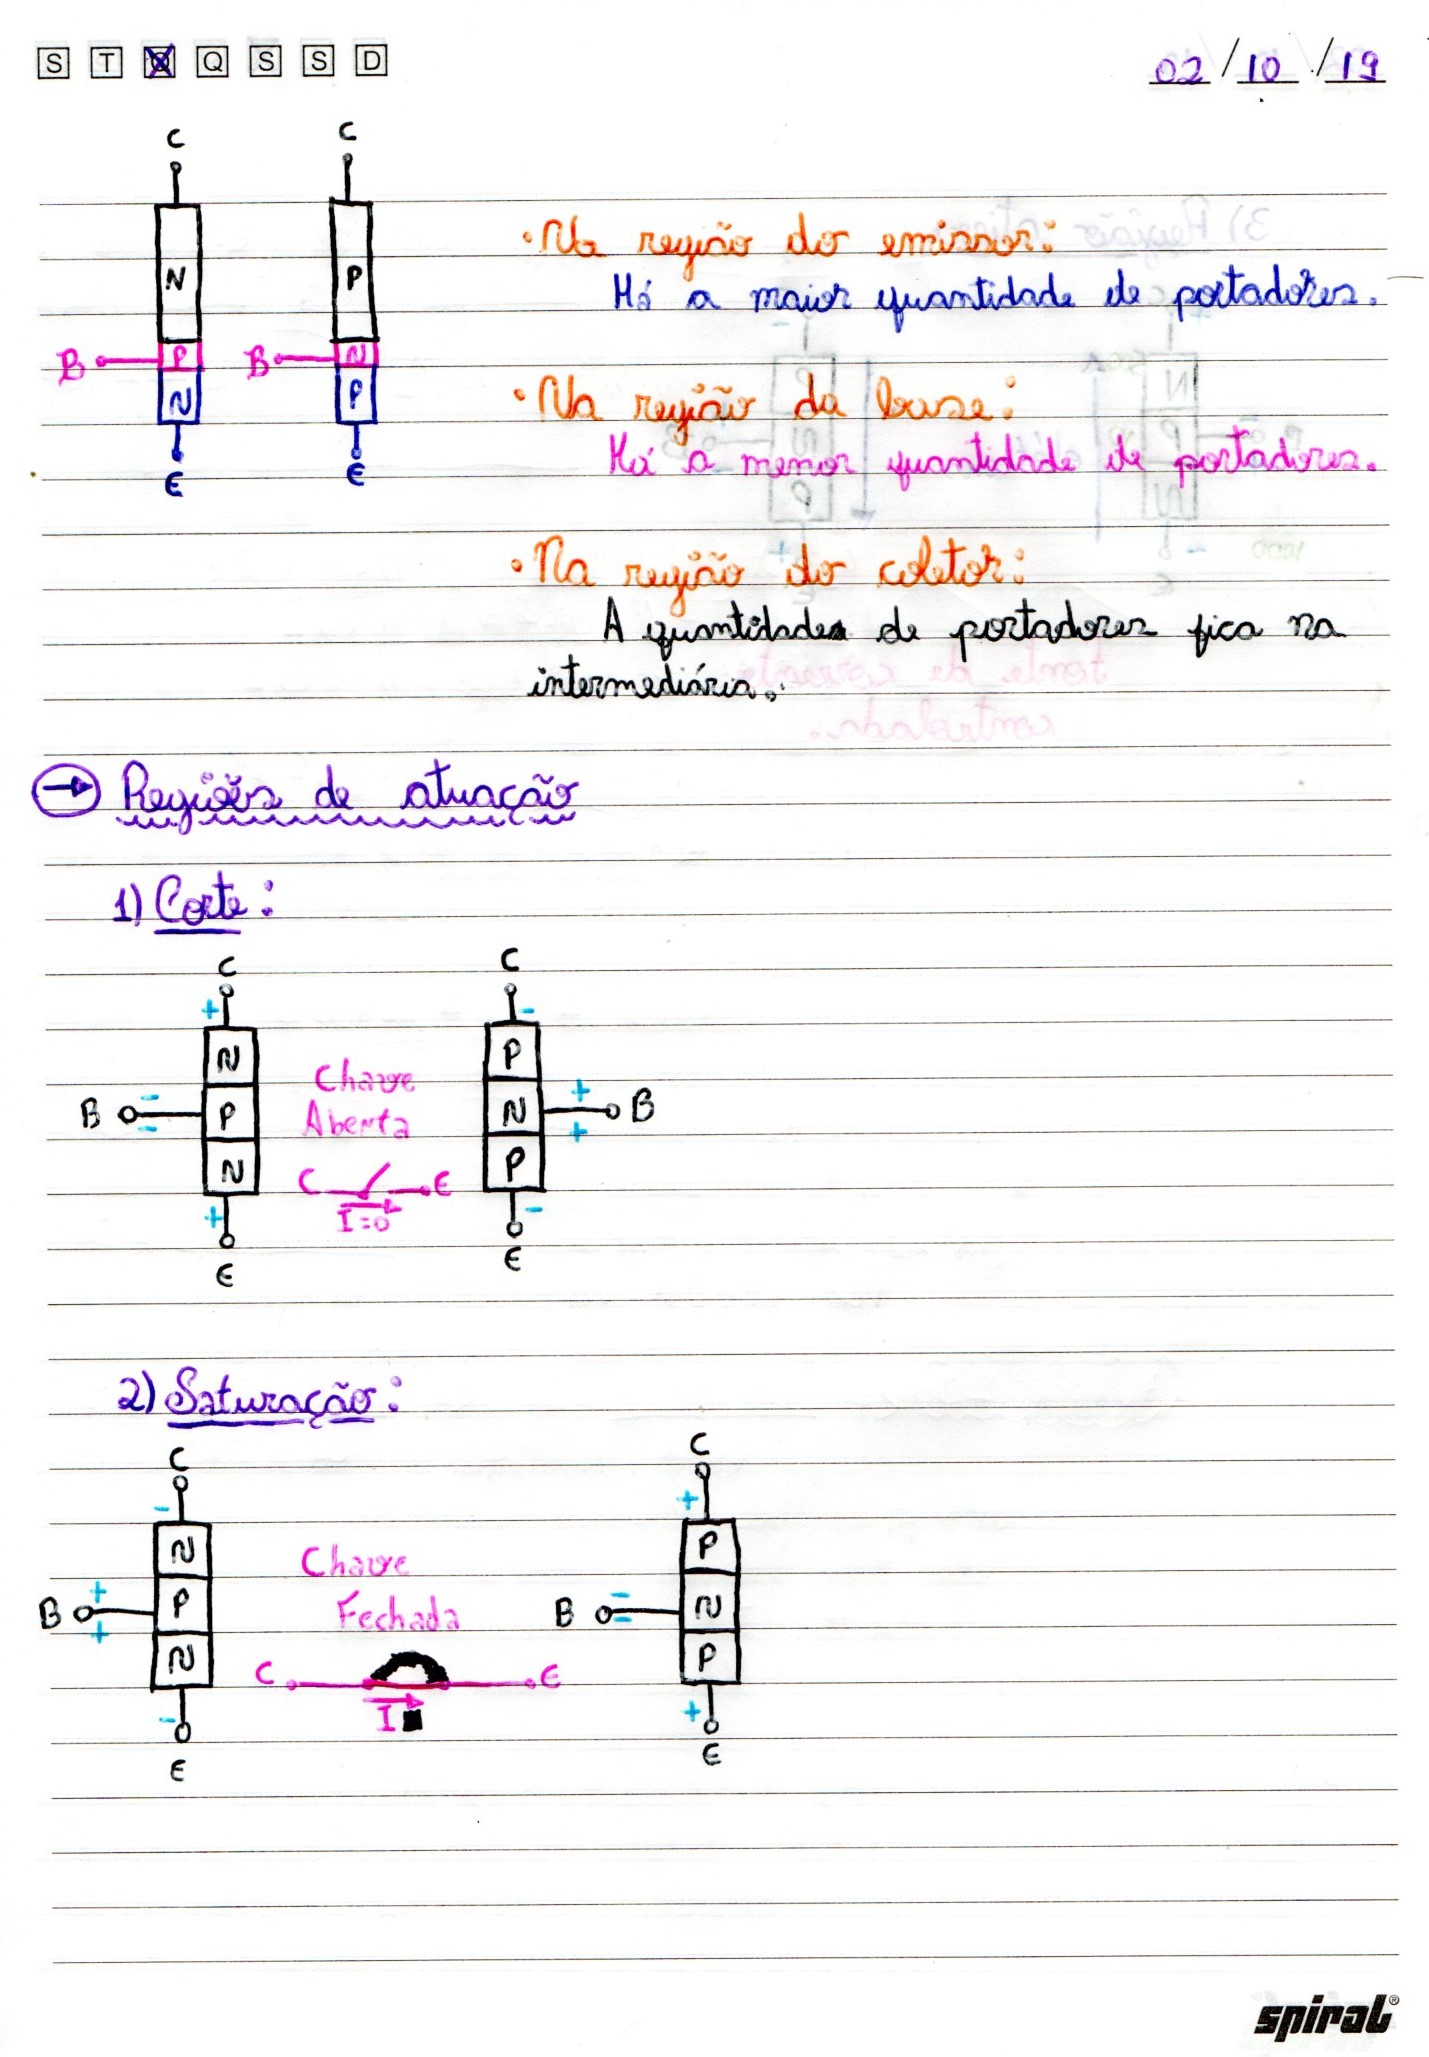 S T Q Q S S D
02/10/19
C C
N P
B P B N
N P
E E
·Na região do emissor:
Há a maior quantidade de portadores.
·Na região da base:
Há a menor quantidade de portadores.
·Na região do coletor:
A quantidade de portadores fica na
intermediária.
→ Regiões de atuação
1) Corte:
C C
+ -
N P
Chave
B - - P Aberta N + + B
N P
C E
I=0
+ -
E E
2) Saturação:
C C
- +
N P
Chave
B + + P Fechada B - - N
N P
C E
I
- +
E E
spiral®